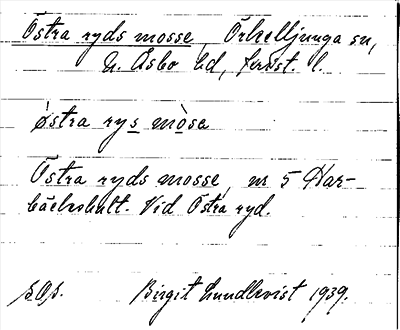 Östra ryds mosse, Örkelljunga sn,
N. Åsbo hd, forst. l.
østra rys mòse
Östra ryds mosse nr 5 Har-
bäckshult. Vid Östra ryd.
s.O.s. Birgit Lundkvist 1939.